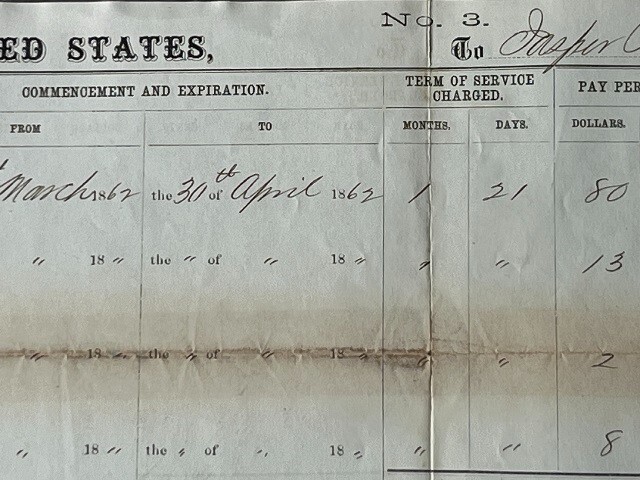 No. 3.
ED STATES,
To Jasper
COMMENCEMENT AND EXPIRATION.
TERM OF SERVICE CHARGED.
PAY PER
FROM TO MONTHS. DAYS. DOLLARS.
March 1862 the 30th of April 1862 1 21 80
" 18 " the " of " 18 " " " 13
" 18 " the " of " 18 " " " 2
" 18 " the " of " 18 " " " 8